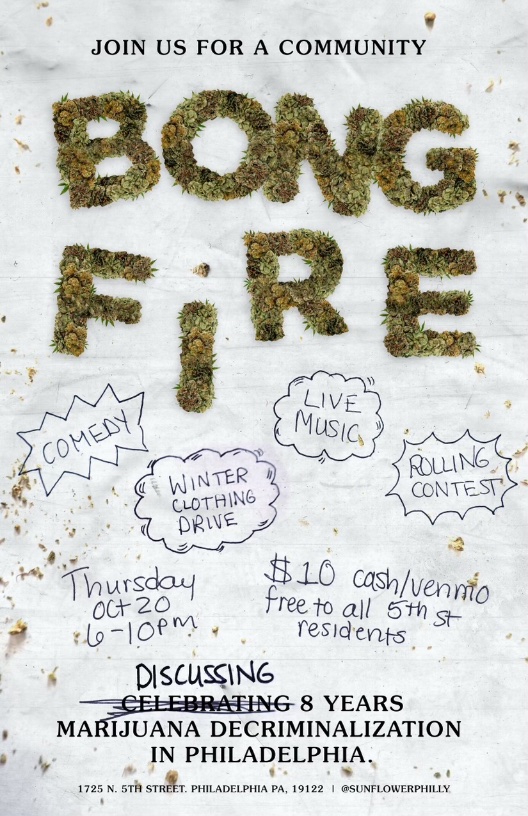 JOIN US FOR A COMMUNITY
BONG
FiRE
COMEDY
LIVE
MUSIC
WINTER
CLOTHING
DRIVE
ROLLING
CONTEST
Thursday
Oct 20
6-10pm
$10 cash/venmo
free to all 5th st
residents
DISCUSSING
CELEBRATING 8 YEARS
MARIJUANA DECRIMINALIZATION
IN PHILADELPHIA.
1725 N. 5TH STREET. PHILADELPHIA PA, 19122 | @SUNFLOWERPHILLY